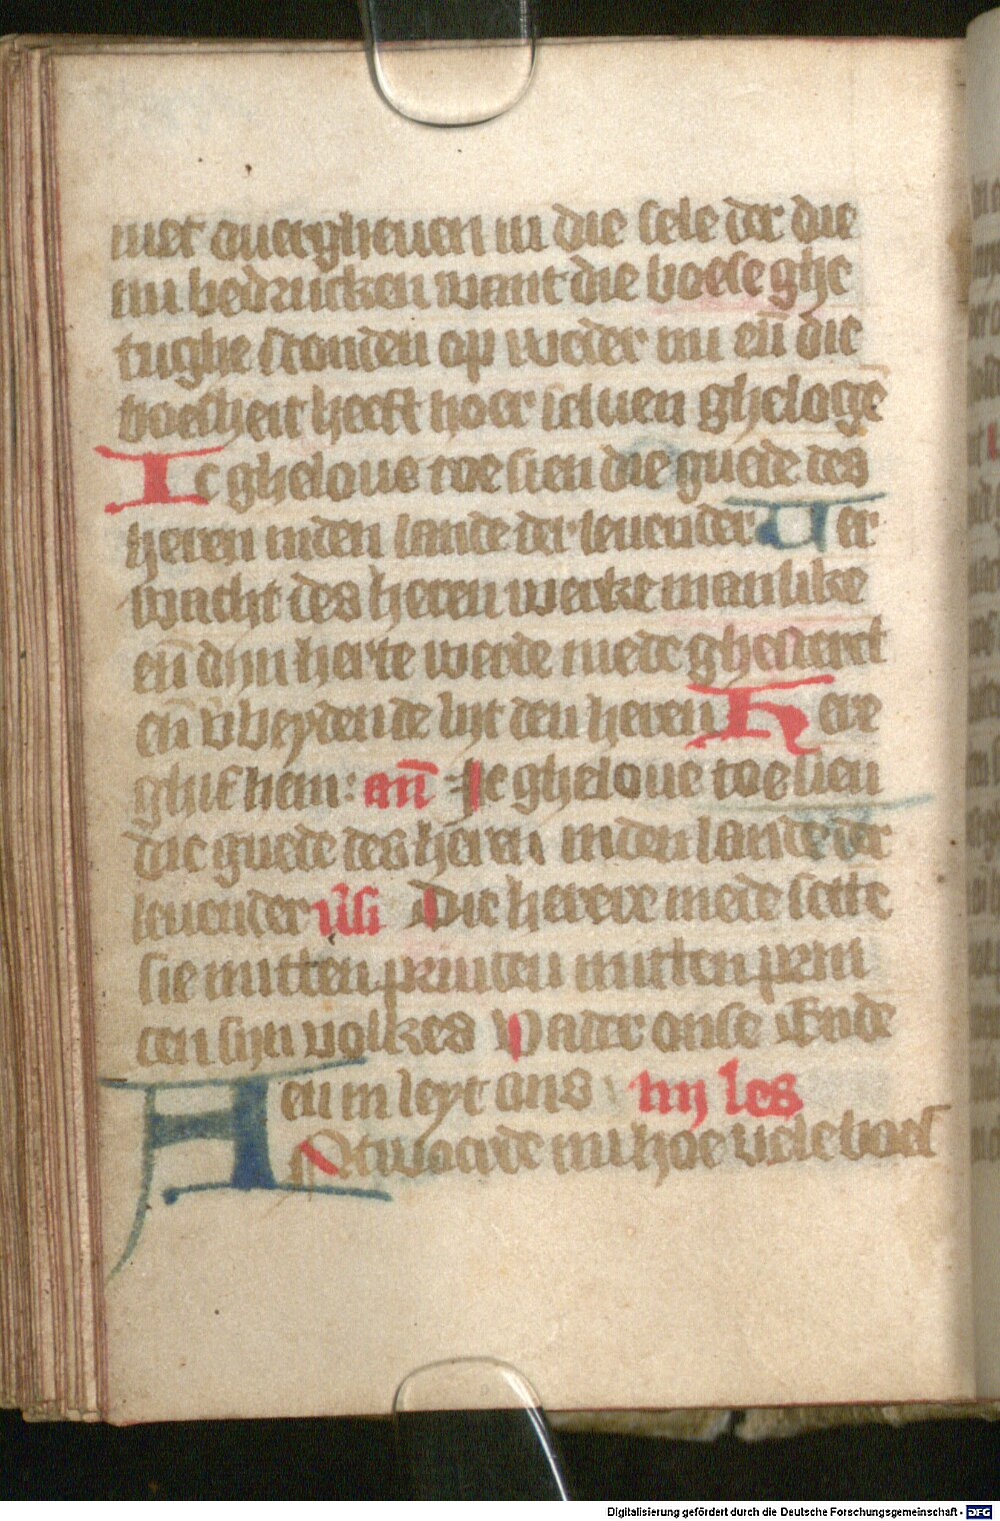 niet auergheuen in die sele der die
mi bedrucken want die boese ghe
tughe stonden op weder mi en̄ die
boesheit heeft hoer seluen ghelogē
Ic gheloue toe sien die guede des
heren inden lande der leuender Uer
wacht des heren werke manlike
en̄ dijn herte werde mede ghesterct
en̄ v̄beyden de byt den heren Here
ghif hem: an̄ Ic gheloue toe sien
die guede des heren inden lande der
leuender v̄si Die herere mede sette
sie mitten printen mitten prin
cen sijn volkes Vader onse Ende
en in leyt ons iiij les
Antwoerde mi hoe vele boes
Digitalisierung gefördert durch die Deutsche Forschungsgemeinschaft - DFG